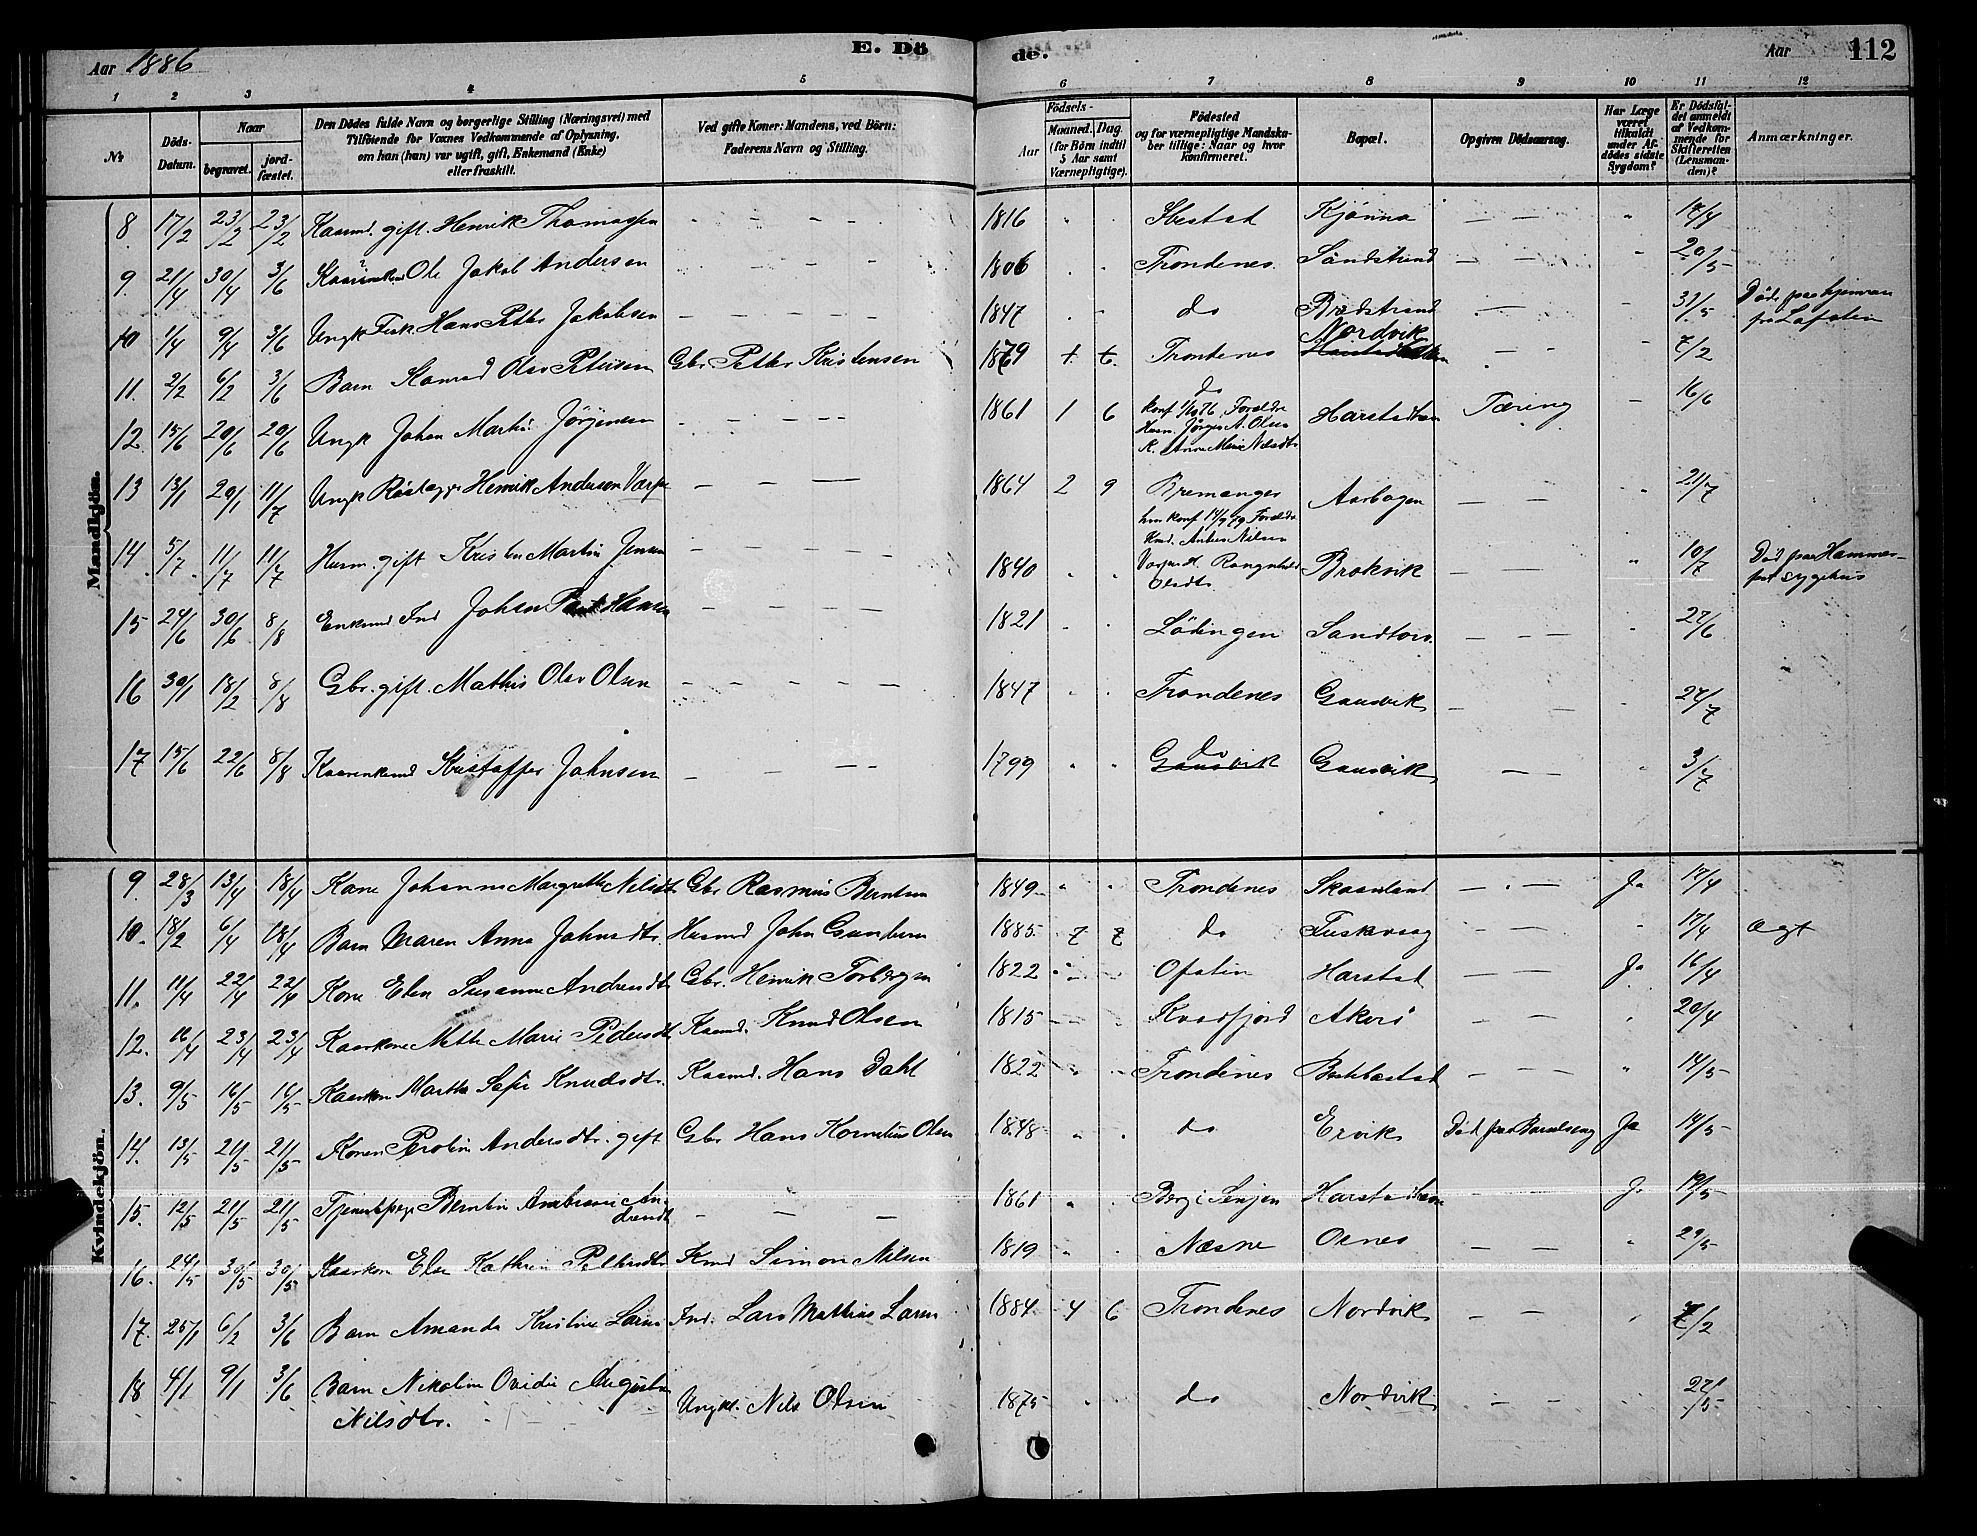 Aar 1886 E. Dö de. Aar 112
1 2 3 4 5 6 7 8 9 10 11 12
№ Döds-Datum. Naar begravet. jordfæstet. Den Dödes fulde Navn og borgerlige Stilling (Næringsvei) med Tilföiende for Voxnes Vedkommende af Oplysning, om han (hun) var ugift, gift, Enkemand (Enke) eller fraskilt. Ved gifte Koner: Mandens, ved Börn: Faderens Navn og Stilling. Aar Födsels- Maaned. Dag. (for Börn indtil 5 Aar samt Værnepligtige). Födested og for værnepligtige Mandskaber tillige: Naar og hvor konfirmeret. Bopæl. Opgiven Dödsaarsag. Har Læge været tilkaldt under Afdödes sidste Sygdom? Er Dödsfaldet anmeldt af Vedkommende for Skifteretten (Lensmanden)? Anmærkninger.
Mandkjön.
8 17/2 23/2 23/2 Kaarmd. gift. Henrik Thomassen - - - - 1816 Ibestad Kjönna - - 17/4
9. 21/4 30/4 3/6 Ole Jakob Andersen - - - - 1806 Trondenes. Sandstrand - - 20/5
10 1/4 9/4 3/6 Ungk Fisk. Hans Petter Jakobsen - - - - - 1847 do Brædstrand - - 31/5 Död paa hjemrei fra Lofoten
11. 2/2 6/2 3/6 Barn Konrad Olav Petersen Gbr Petter Kristensen 1879 Trondenes Nordvik - - 7/2
12. 15/6 20/6 20/6 Ungk Johan Martin Jörgensen - - - - 1861 1 6 do Konf 1/10 76, Forældre Husm. Jörgen A. Olsen K. Anne Marie Nilsdtr Harstadhavn Tæring - 16/6
13 13/1 20/1 11/7 Ungk Henrik Andersen - - - 1864 2 9 Bremanger hvor konf 14/9 79 Forældre Anders Nilsen Rangnhild Olsdtr. Aarbogen - - 21/7
14. 5/7. 11/7 11/7 Husm. gift Kristen Martin Jensen - - - - - 1840 Brokvik - - 10/7 Död paa Hammerfest sygehus
15 24/6 30/6 8/8 Enkemd Ind Johan Hansen - - - - - 1821 Lödingen Sandtorv. - - 27/6
16 30/1 18/2 8/8 Gbr. gift. Mathis Olav Olsen - - - - - 1847 Trondenes Gausvik - - 27/7
17 15/6 22/6 8/8 Kaarenkemd Kristoffer Johnsen - - - 1799 do Gausvik Gausvik - - 3/7
Kvindekjön.
9. 28/3 13/4 18/4 Kone Johanna Margrethe Nilsdtr Gbr Rasmus Berntsen 1849 Trondenes Skaanland - - Ja 17/4
10. 18/2 6/4 18/4 Barn Maren Anna Johnsdtr. Husmd John 1885. 7 7 do Fuskevaag - - 17/4 ægt
11. 11/4 22/4 22/4 Kone Elen Susanne Andersdtr Gbr. Henrik Torbergsen 1822 Ofoten Harstad - - Ja 16/4
12. 16/4 23/4 23/4 Kaarkone Mette Marie Pedersdtr Kaarmd. Knud Olsen 1815 Kvædfjord Akerö - - 20/4
13. 9/5 16/5 16/5 Kaarkone Martha Sofie Knudsdtr. Kaarmd. Hans Dahl 1822 Trondenes - - - 14/5
14. 13/5 21/5 21/5 Konen Andersdtr. gift Gbr Hans Kornelius Olsen 1848 do Ervik Död paa Barselseng Ja 14/5
15. 12/5 21/5 21/5 Tjenestepige Berntine Andersdtr - - - 1861 Berg i Senjen Harstadhavn Ja 19/5
16. 24/5 30/5 30/5 Kaarkone Else Kathrin Kmd Simon Nilsen 1819 Næsne Oenes - - 29/5
17. 25/1 6/2 3/6 Barn Amanda Kristine Larsen Ind. Lars Mathias Larsen 1884 4 6 Trondenes Nordvik - - 7/2
18 4/1 9/1 3/6 Barn Nikoline Ovidie Augusta Nilsdtr. Ungkl. Nils Olsen 1875 do Nordvik - - 27/5